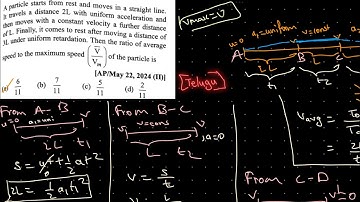 A particle starts from rest and moves in a straight line.
It travels a distance 2L with uniform acceleration and
then moves with a constant velocity a further distance
of L. Finally, it comes to rest after moving a distance of
3L under uniform retardation. Then the ratio of average
speed to the maximum speed (V̅/Vm) of the particle is
[AP/May 22, 2024 (II)]
(a) 6/11 (b) 7/11 (c) 5/11 (d) 2/11
Vmax = V
[Telugu]
u=0 a1=uniform v v=const v
A B C
2L L
t1 t2
Vavg =
From A-B
u=0 a1=uni v
2L t1
S = ut + 1/2 at²
2L = 1/2 a1t1²
From B-C
v v=cons v
L t2 , a=0
V = S/t
From C-D